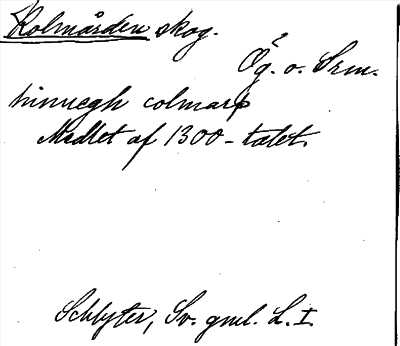 Kolmården skog.
Ög. o. Srm.
hinnegh colmarþ
Medlet af 1300-talet.
Schlyter, Sv. gml. L. I.